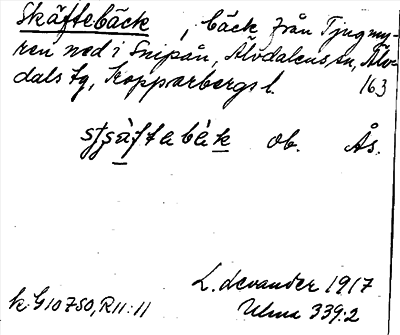 Skäftebäck, bäck från Tjugmy-
ren ned i Snipån, Älvdalens sn, Älv-
dals tg, Kopparbergs l. 163
ob. Ås.
L. Levander 1917
k: G10750, R11:11 Ulma 339:2